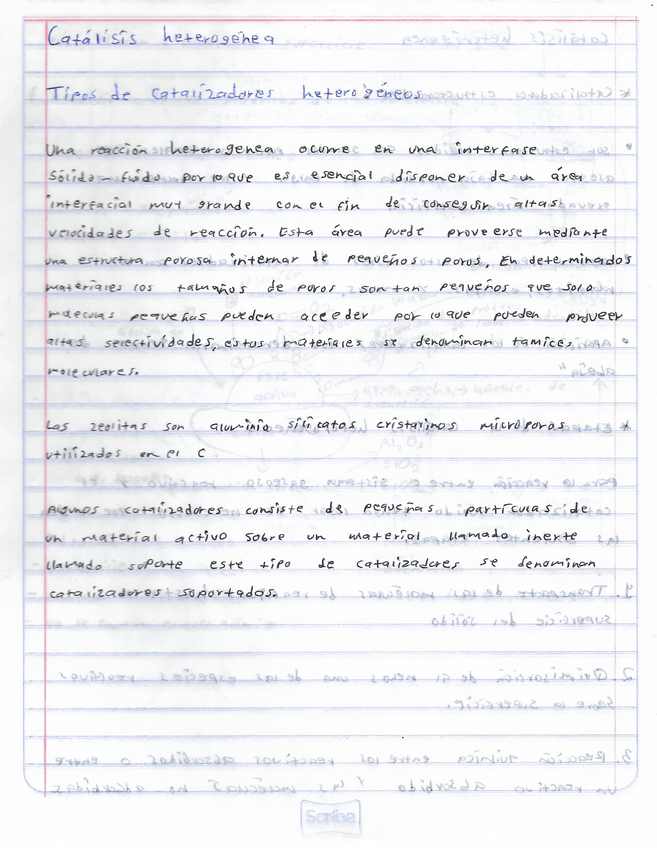 Catálisis heterogénea
Tipos de catalizadores heterogéneos
Una reacción heterogenea ocurre en una interfase
Sólido - fluido por lo que es esencial disponer de un área
interfacial muy grande con el fin de conseguir altas
velocidades de reacción. Esta área puede proveerse mediante
una estructura porosa internar de pequeños poros. En determinados
materiales los tamaños de poros son tan pequeños que solo
pequeñas pueden acceder por lo que pueden proveer
altas selectividades, estos materiales se denominan tamices
moleculares.
Las zeolitas son aluminio silicatos cristalinos microporos
utilizados en el C.
Algunos catalizadores consiste de pequeñas partículas de
un material activo sobre un material llamado inerte
llamado soporte este tipo de catalizadores se denominan
catalizadores soportados.
Scribe